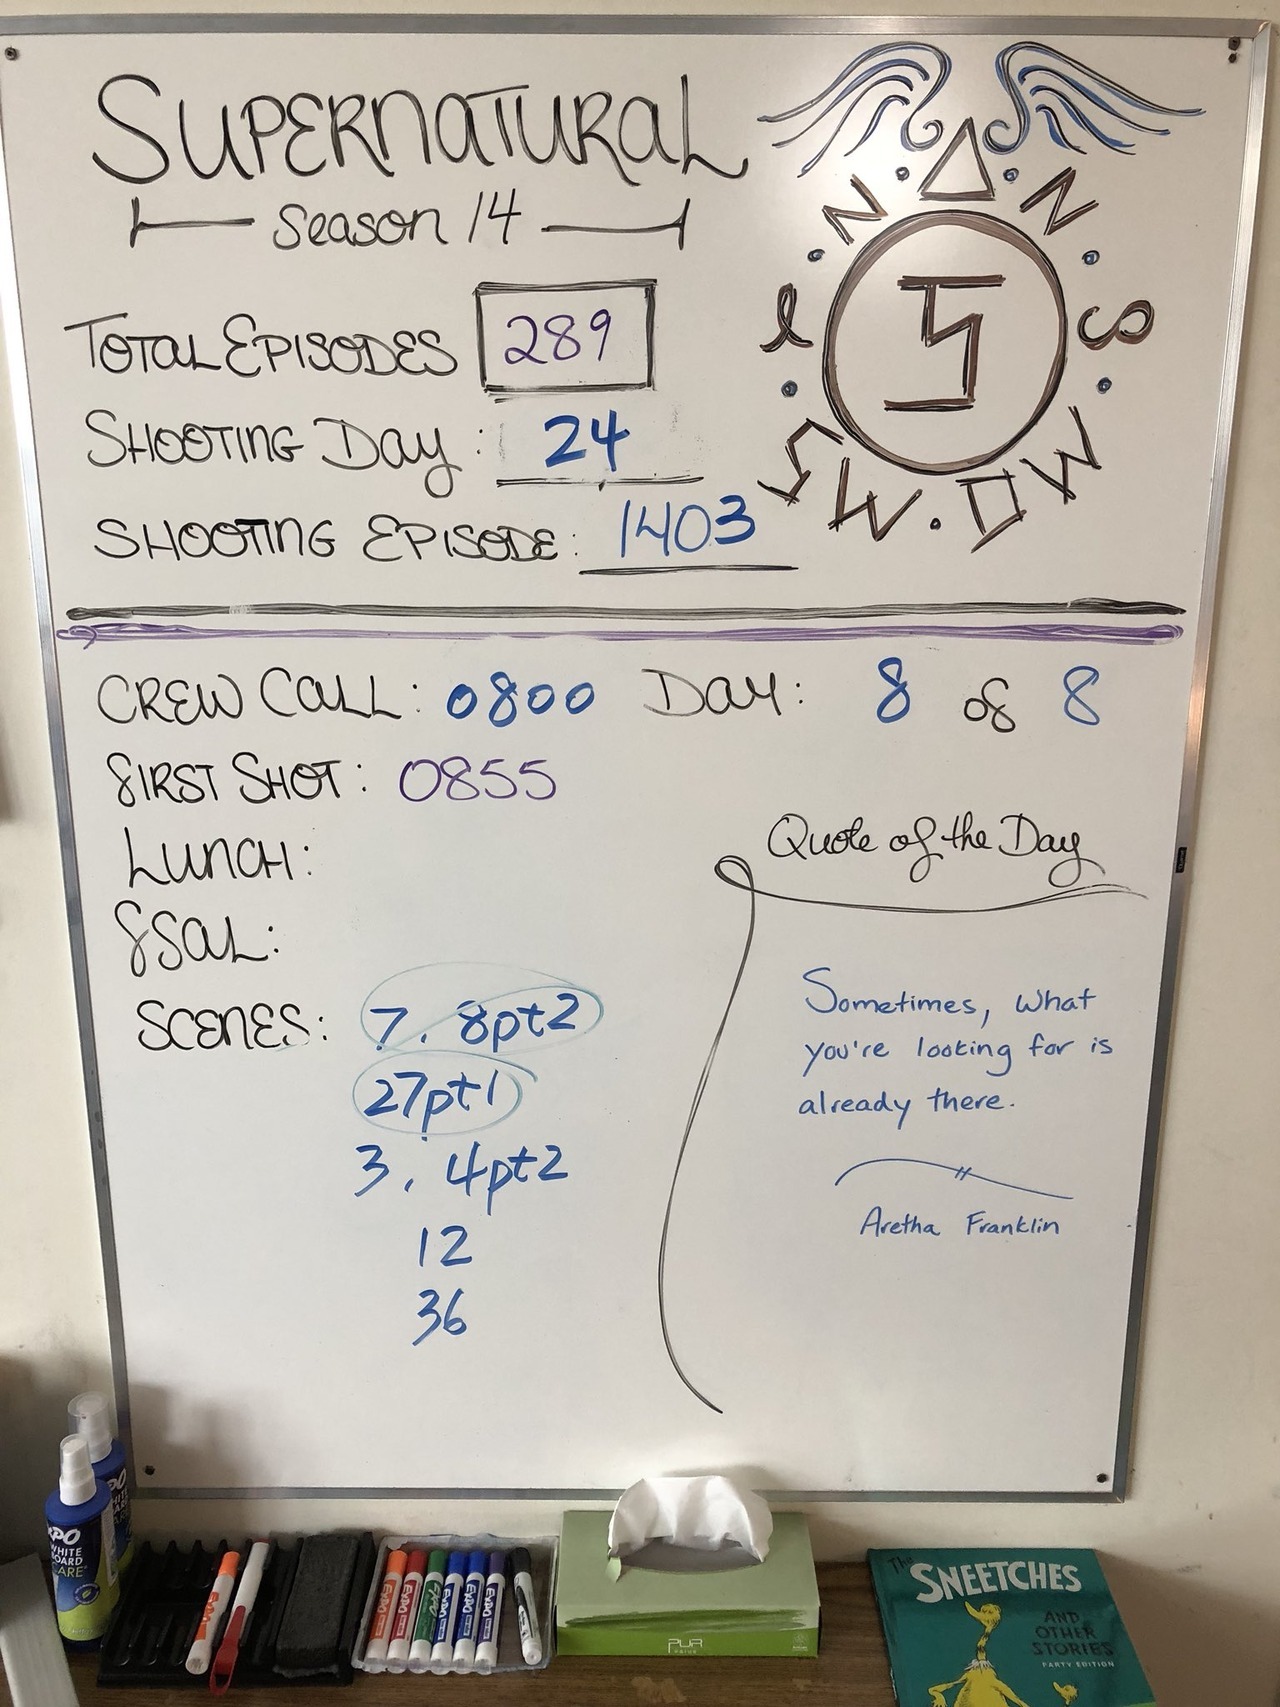 SUPERNATURAL
Season 14
TOTAL EPISODES 289
SHOOTING DAY: 24
SHOOTING EPISODE: 1403
CREW CALL: 0800 DAY: 8 of 8
FIRST SHOT: 0855
LUNCH:
FSAL:
SCENES: 7, 8pt2
27pt1
3, 4pt2
12
36
Quote of the Day
Sometimes, what
you're looking for is
already there.
Aretha Franklin
EXPO
WHITE
BOARD
CARE
EXPO EXPO EXPO EXPO EXPO EXPO
PUR
VALUE
The
SNEETCHES
AND
OTHER
STORIES
PARTY EDITION